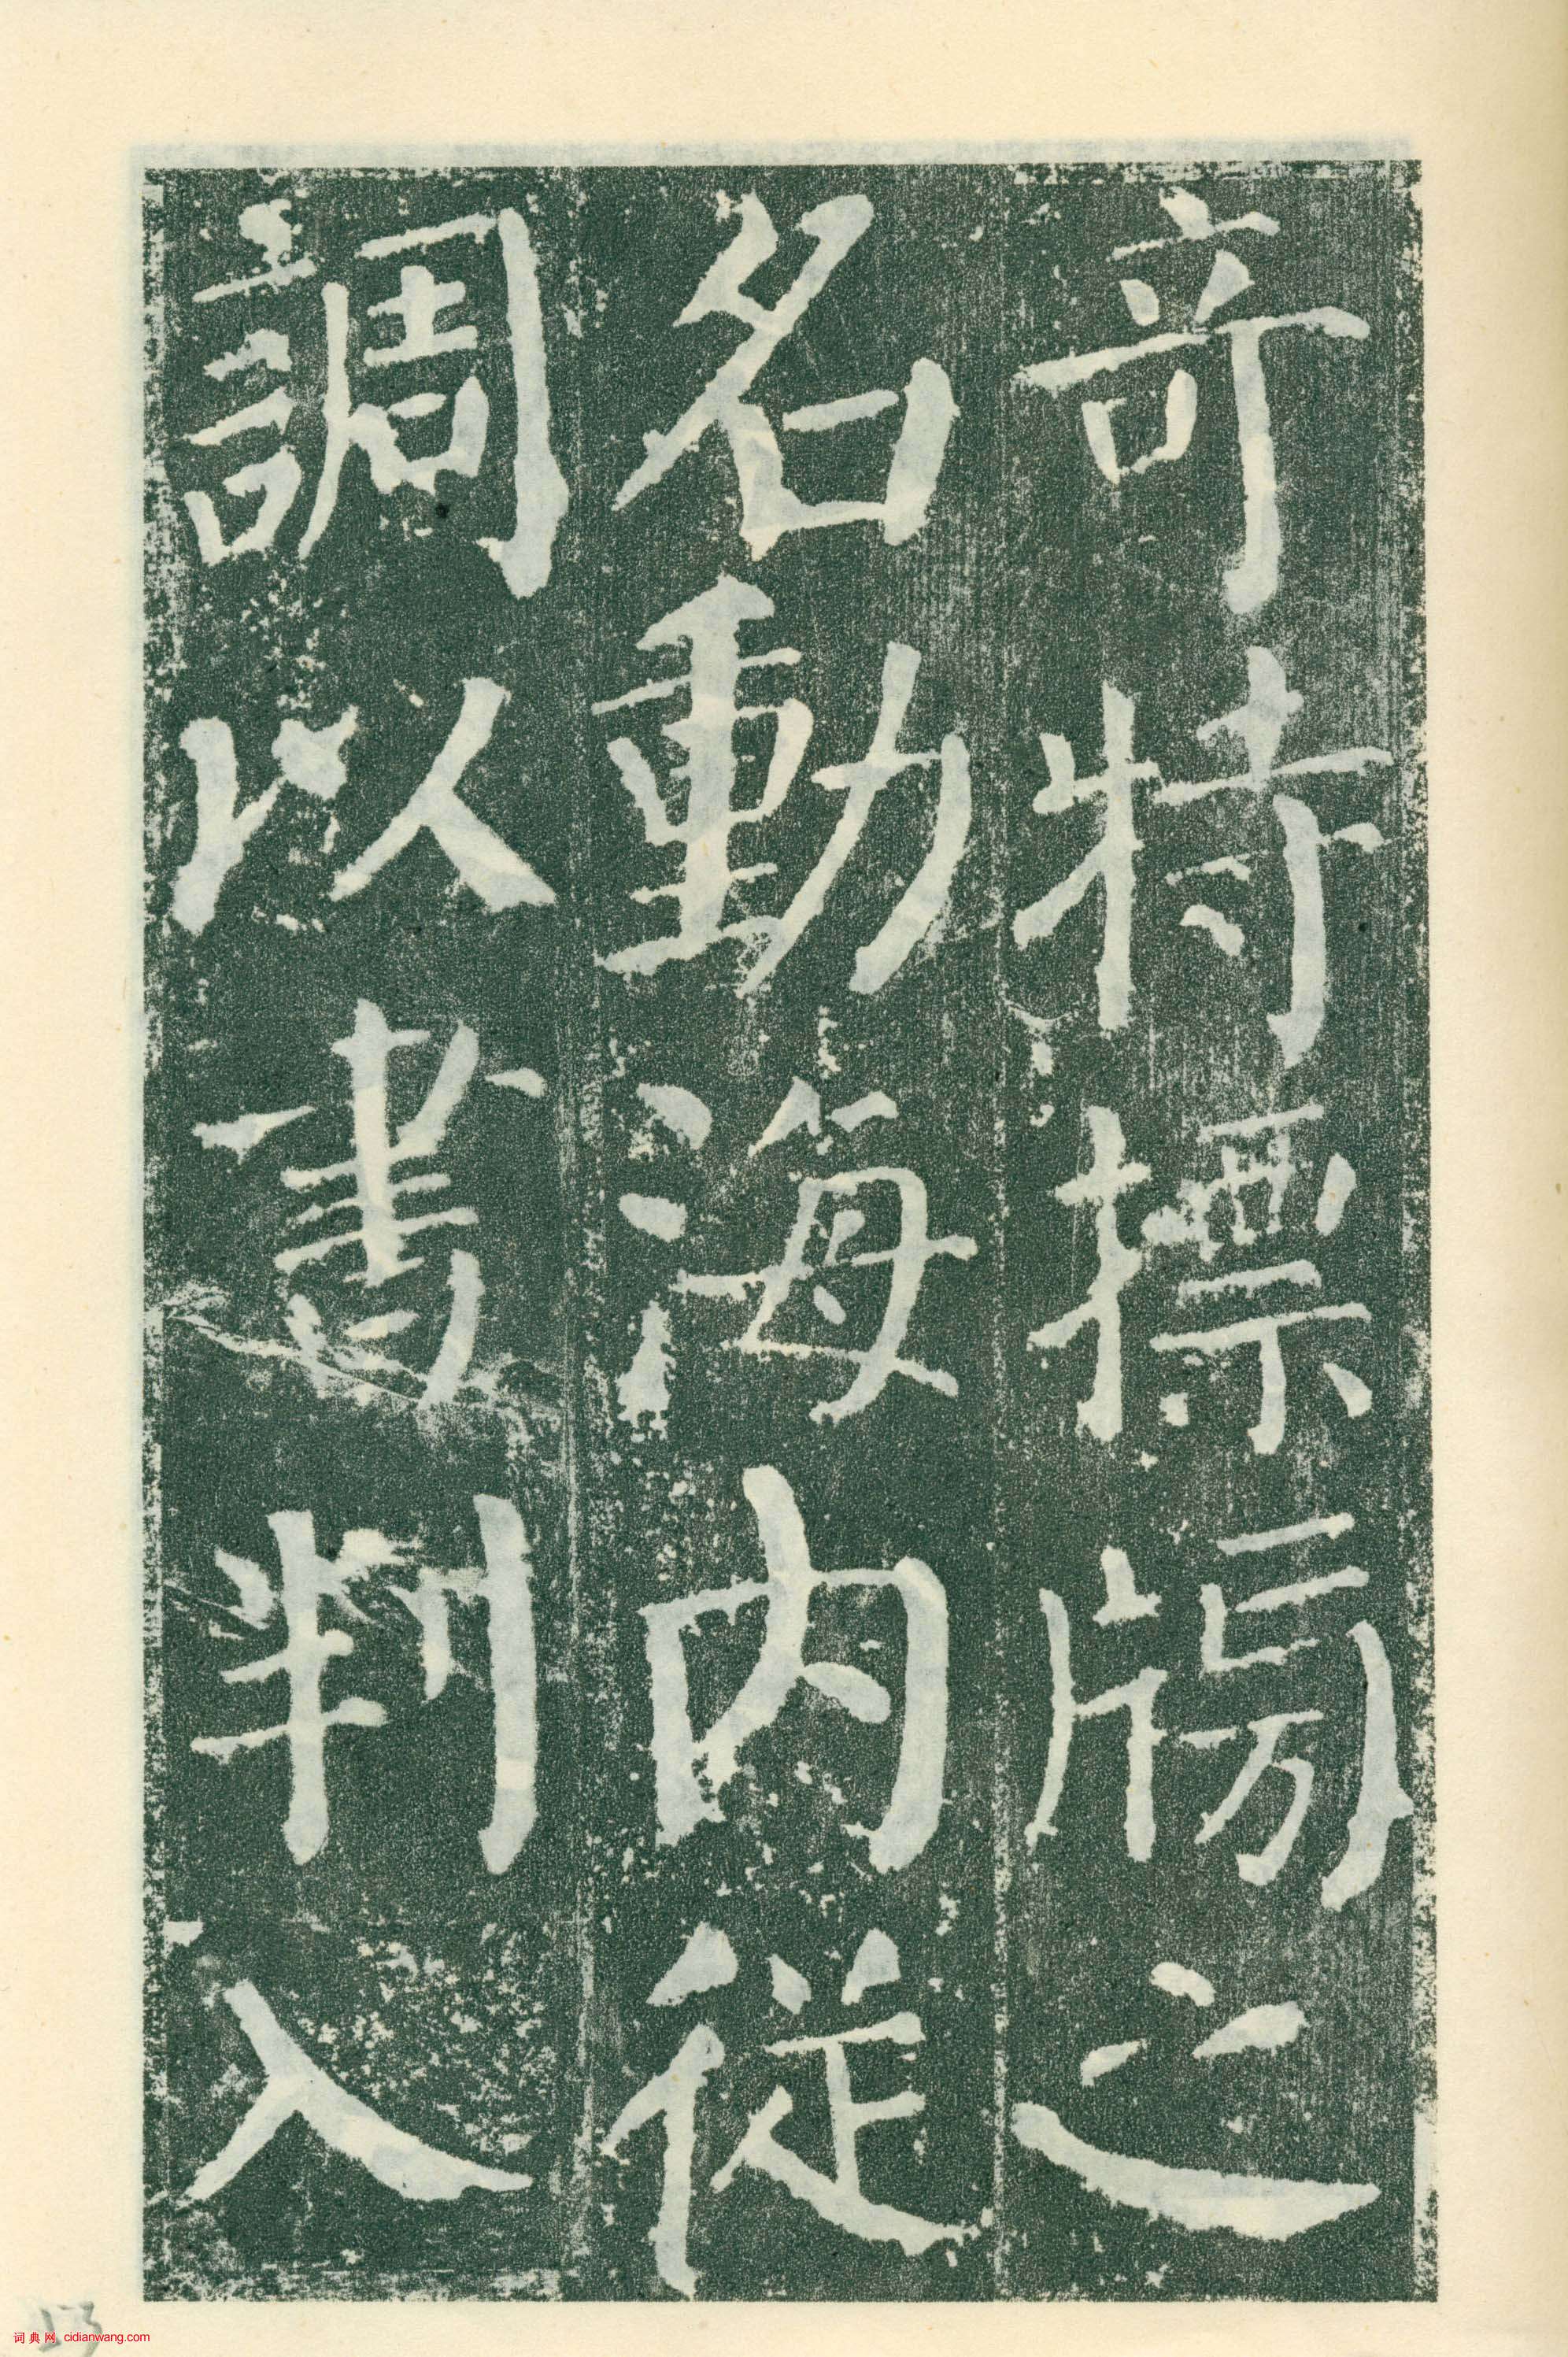 竒特摽牓之
名動海内從
調以書判入
23
词典网 cidianwang.com